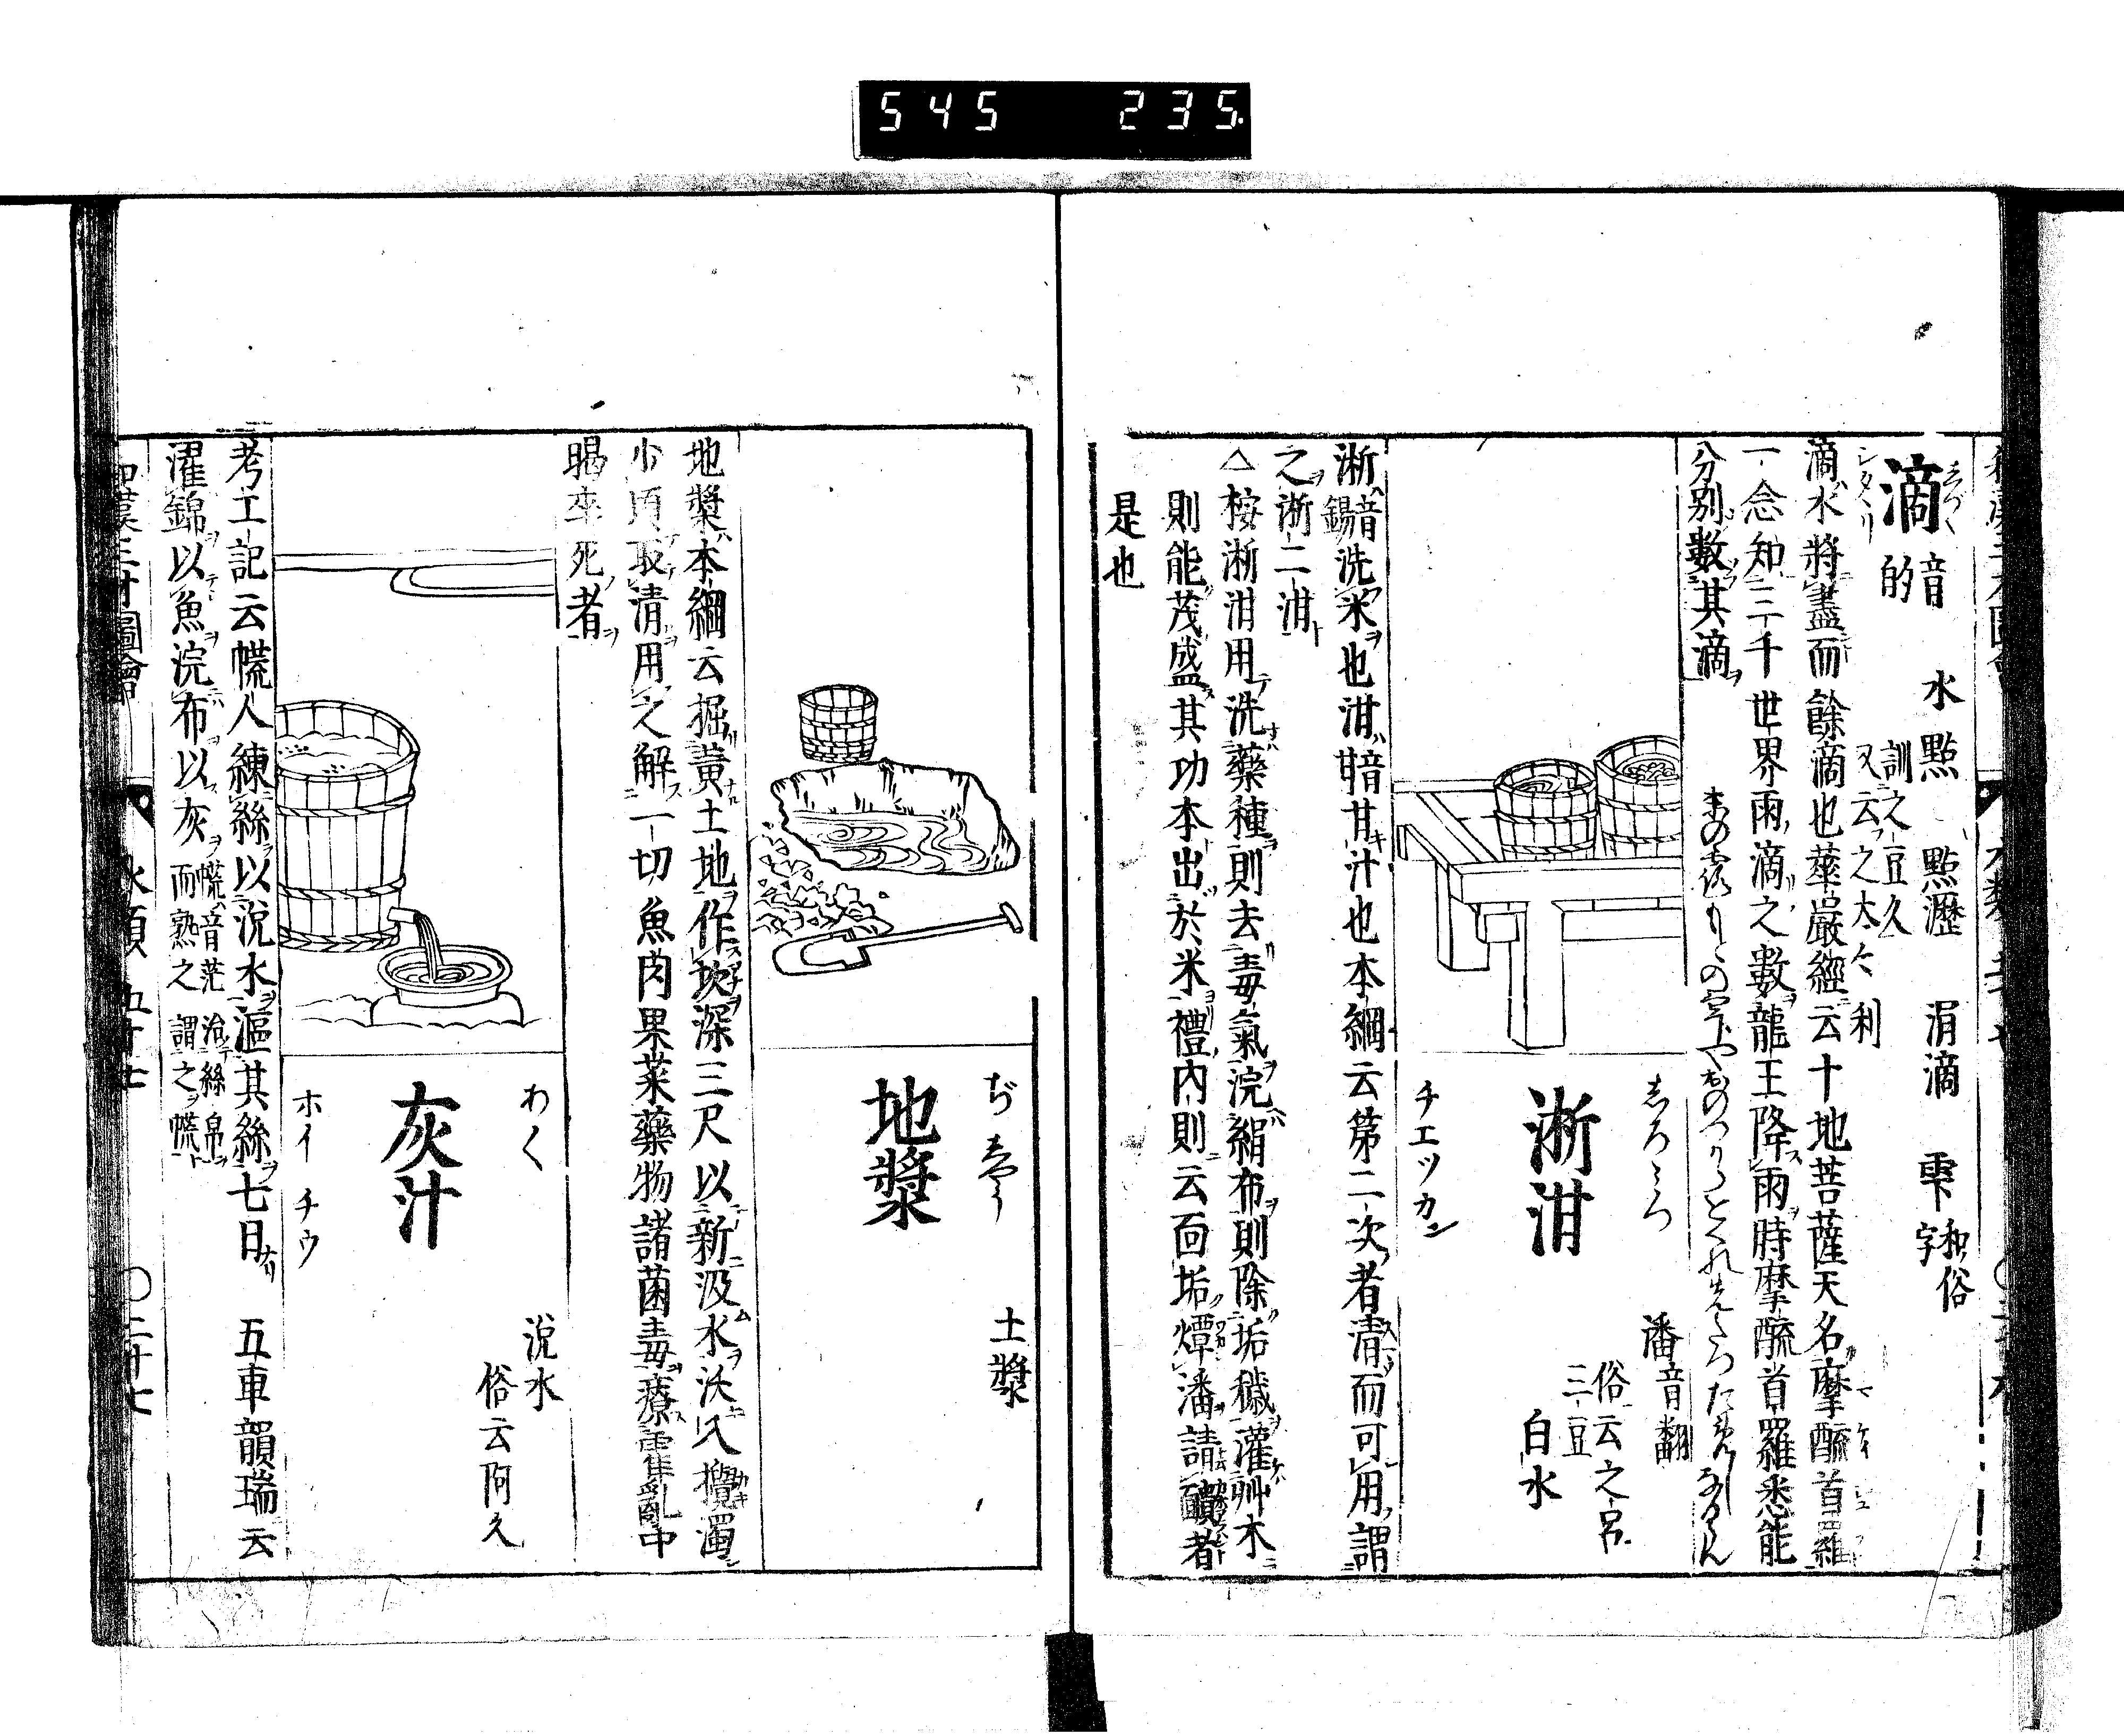 545 235
滴 音的 水點 點瀝 涓滴 雫 和俗字
しづく
シタヽリ
訓之豆久
又云之太々利
滴水將盡而餘滴也華嚴經云十地菩薩天名摩醯首羅
一念知三千世界雨滴之數龍王降雨時摩醯首羅悉能
分别數其滴
淅泔
しろみつ
チエツカン
潘音翻
俗云之呂三豆
白水
淅音錫洗米也泔音甘甘汁也本綱云第二次者清而可用謂
之淅二泔
△桉淅泔用洗藥種則去毒氣浣絹布則除垢穢灌艸木
則能茂盛其功本出於米禮內則云面垢燂潘請靧者
是也
地漿
ぢしやう
土漿
地漿本綱云掘黃土地作坎深三尺以新汲水沃入攪濁
少頃取清用之解一切魚肉果菜藥物諸菌毒療霍亂中
暍卒死者
灰汁
わく
ホイ チウ
涚水
俗云阿久
考工記云㡆人練絲以涚水漚其絲七日 五車韻瑞云
濯錦以魚浣布以灰 㡆音茫治絲帛而熟之謂之㡆
和漢三才圖會 水類 五十七 〇二十七